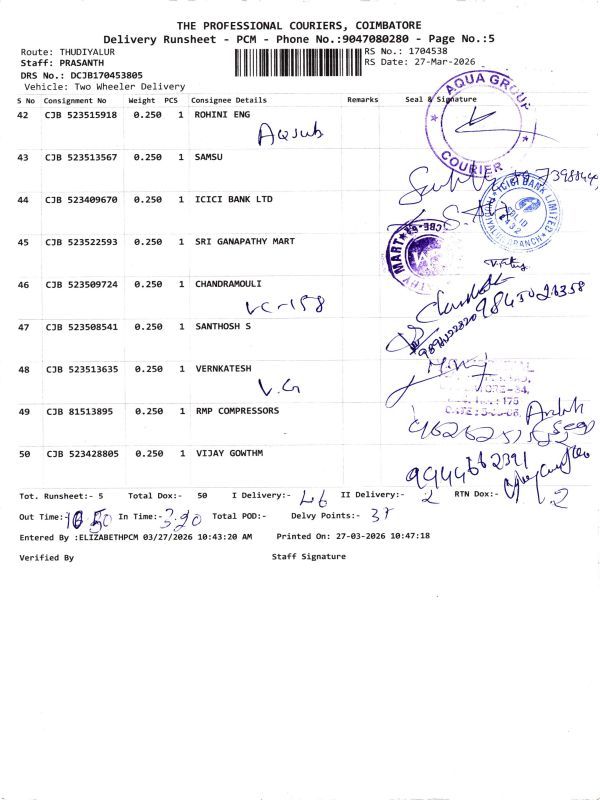 THE PROFESSIONAL COURIERS, COIMBATORE
Delivery Runsheet - PCM - Phone No.:9047080280 - Page No.:5
Route: THUDIYALUR RS No.: 1704538
Staff: PRASANTH RS Date: 27-Mar-2026
DRS No.: DCJB170453805
Vehicle: Two Wheeler Delivery
S No Consignment No Weight PCS Consignee Details Remarks Seal & Signature
42 CJB 523515918 0.250 1 ROHINI ENG
AQUA GROUP
COURIER
43 CJB 523513567 0.250 1 SAMSU
44 CJB 523409670 0.250 1 ICICI BANK LTD
ICICI BANK LIMITED
BRANCH
45 CJB 523522593 0.250 1 SRI GANAPATHY MART
MART
46 CJB 523509724 0.250 1 CHANDRAMOULI
VC-158
47 CJB 523508541 0.250 1 SANTHOSH S
48 CJB 523513635 0.250 1 VERNKATESH
V.G
49 CJB 81513895 0.250 1 RMP COMPRESSORS
50 CJB 523428805 0.250 1 VIJAY GOWTHM
9944662391
Tot. Runsheet:- 5 Total Dox:- 50 I Delivery:- 46 II Delivery:- 2 RTN Dox:- 2
Out Time: In Time:- 3.20 Total POD:- Delvy Points:- 37
Entered By :ELIZABETHPCM 03/27/2026 10:43:20 AM Printed On: 27-03-2026 10:47:18
Verified By Staff Signature